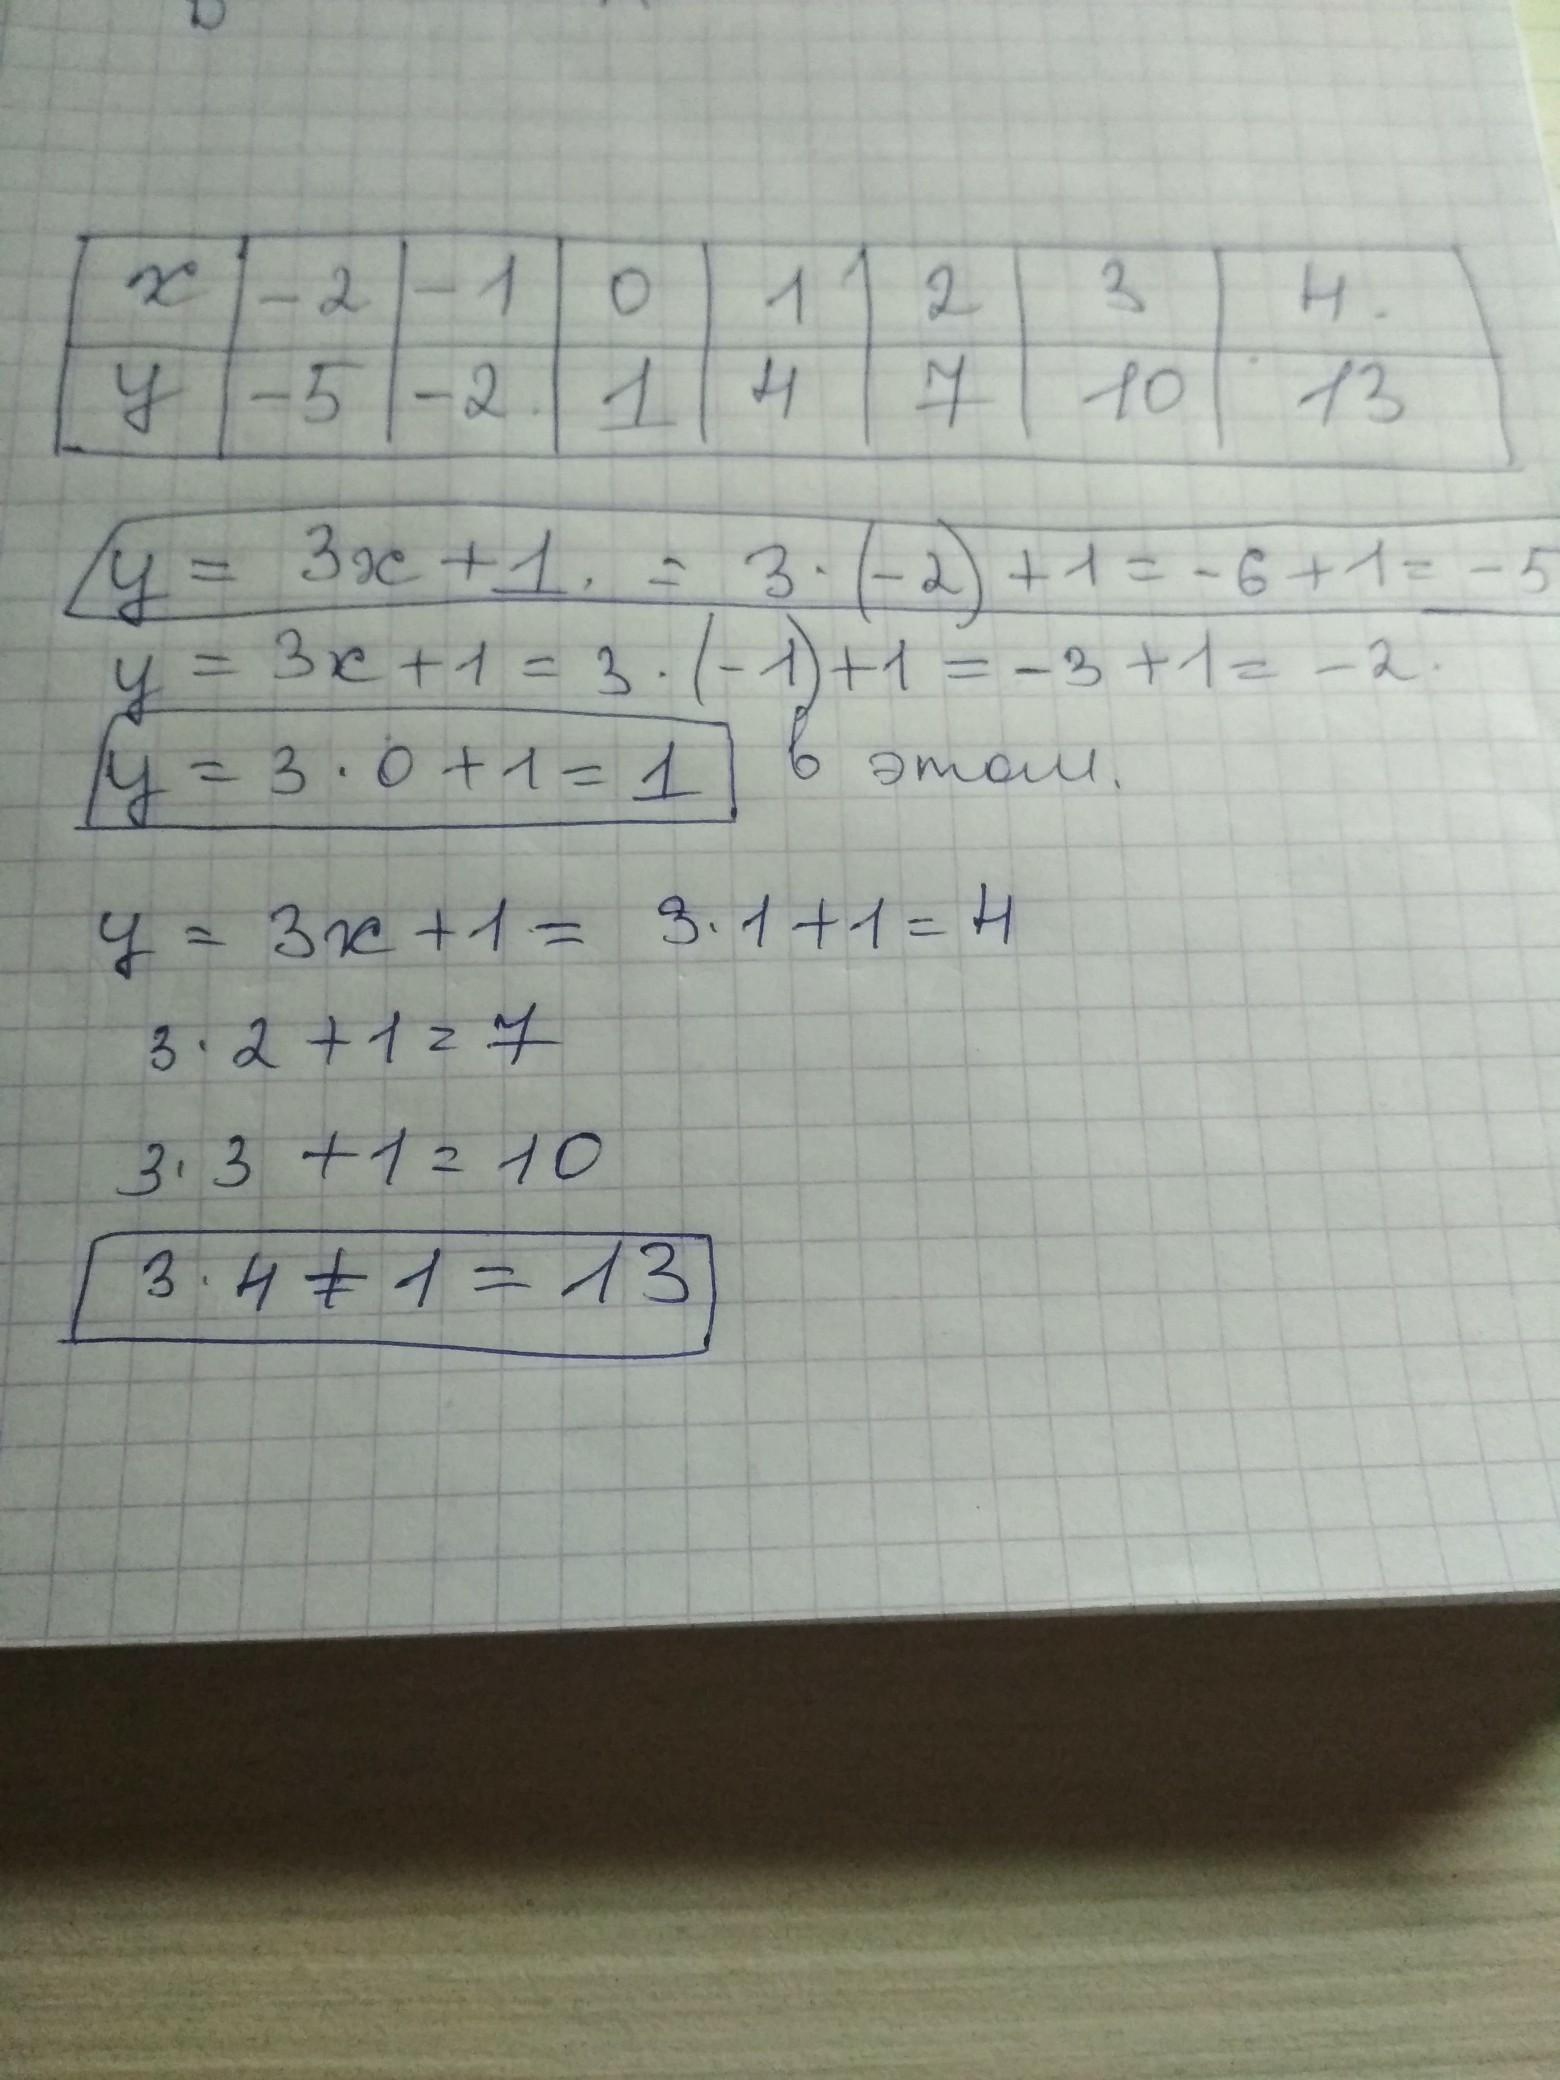 x -2 -1 0 1 2 3 4.
y -5 -2. 1 4 7 10 13
y = 3x + 1. = 3·(-2) + 1 = -6 + 1 = -5
y = 3x + 1 = 3·(-1) + 1 = -3 + 1 = -2.
y = 3·0 + 1 = 1 в этом.
y = 3x + 1 = 3·1 + 1 = 4
3·2 + 1 = 7
3·3 + 1 = 10
3·4 + 1 = 13